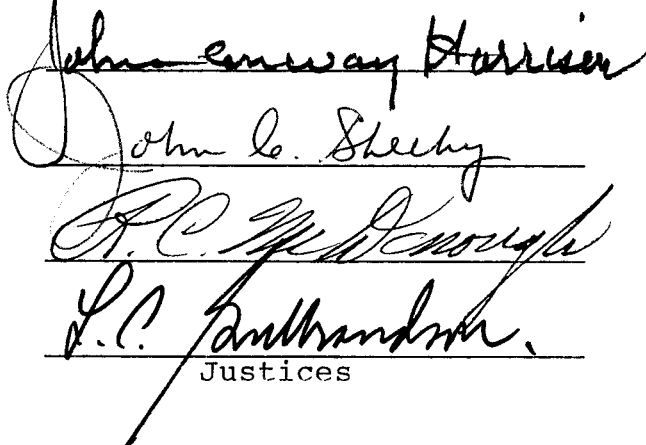 John Conway Harrison
John C. Sheehy
R. C. McDonough
L. C. Gulbrandson.
Justices